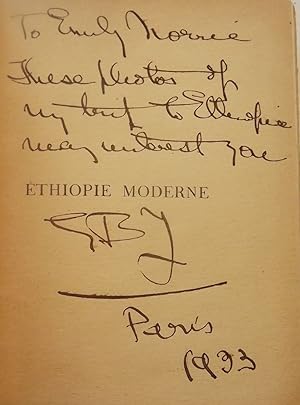 To Emily Norrie
These photos of
my trip to Ethiopia
may interest you
ÉTHIOPIE MODERNE
Paris
1933